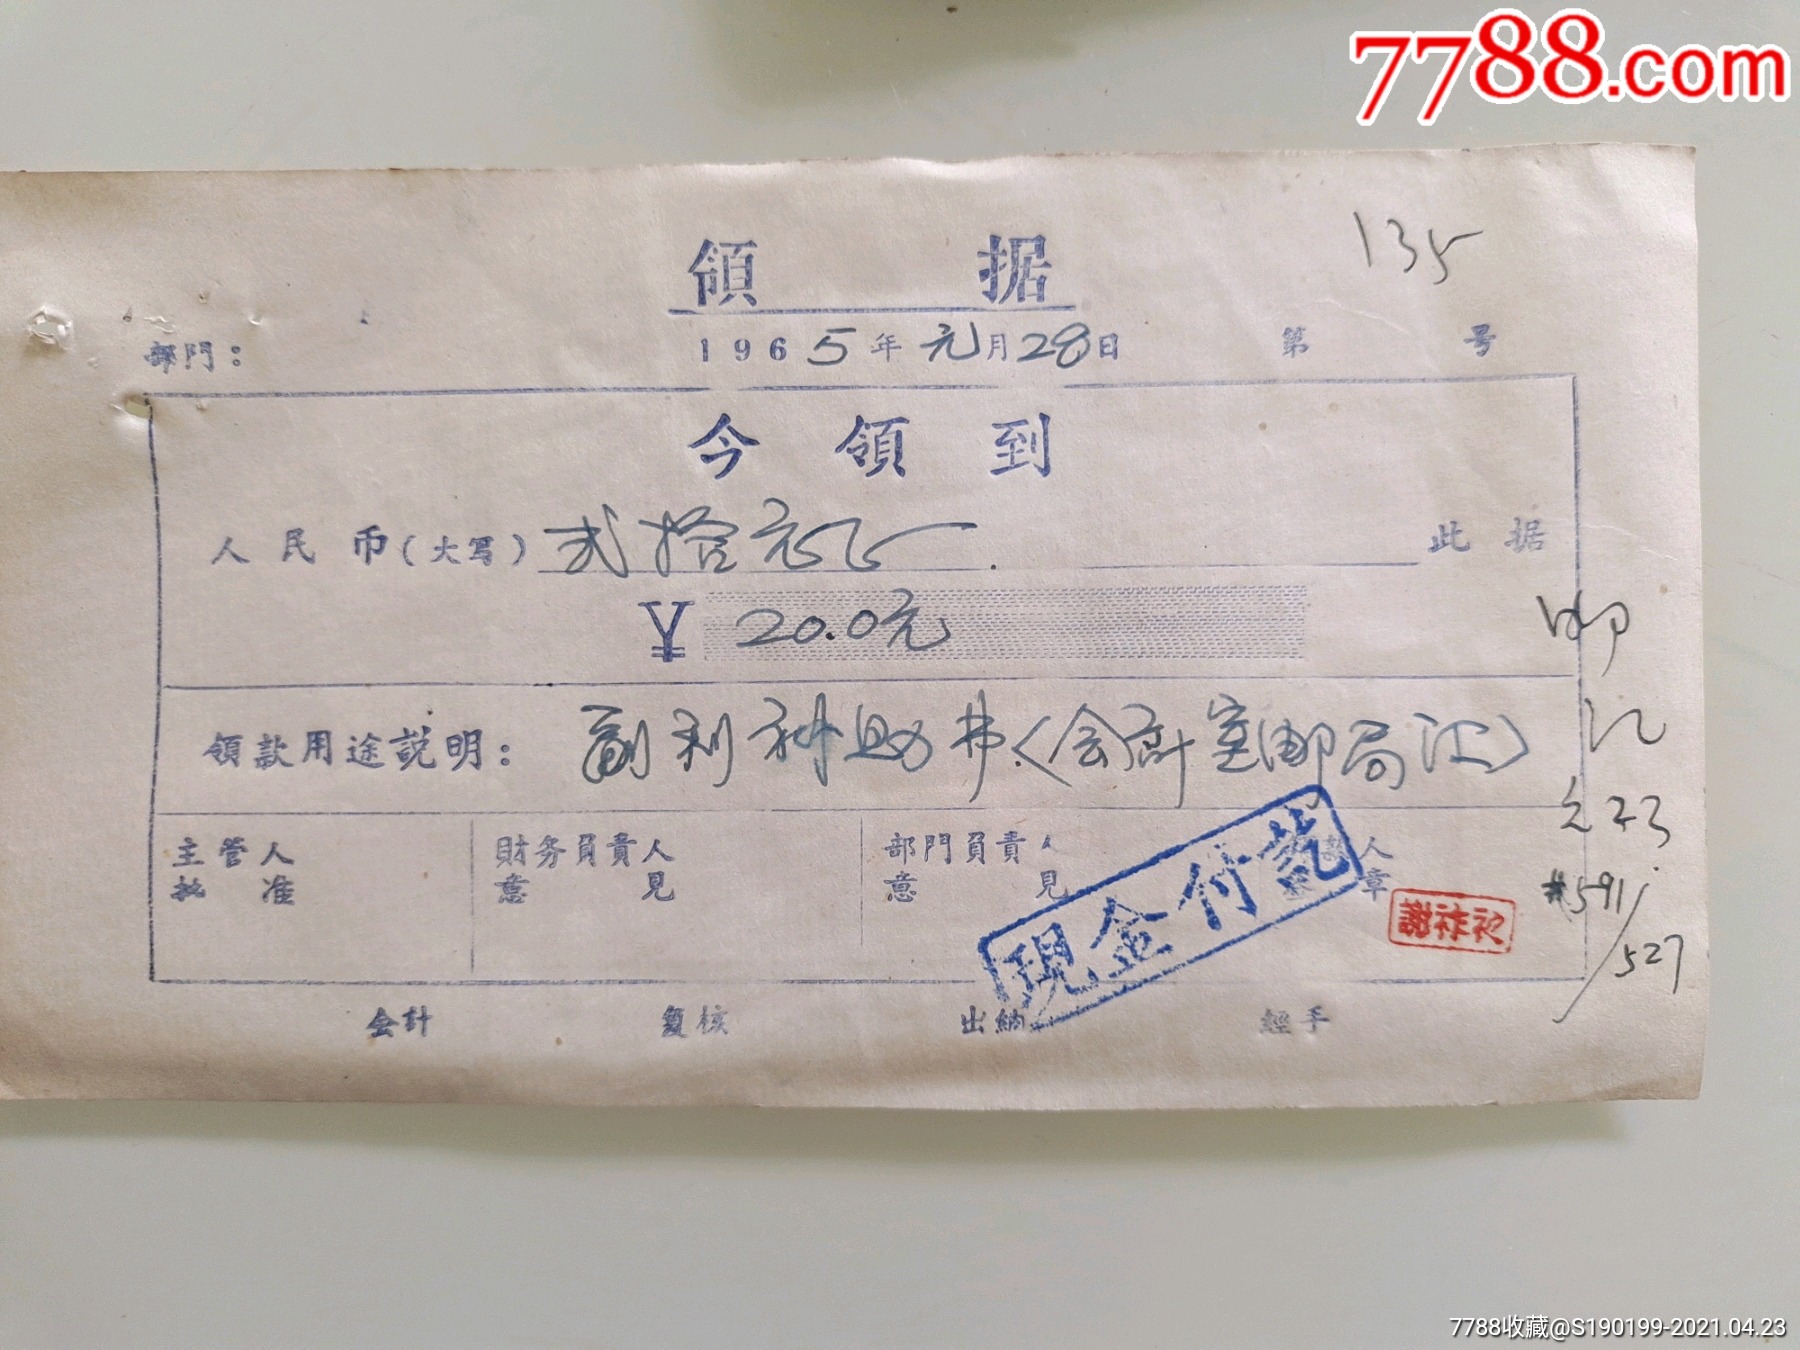 7788.com
領 据
135
部門： 1965年元月28日 第 号
今 領 到
人民币(大写) 弍拾元正 此据
¥ 20.0元
領款用途説明： 副利补助费(会计室邮局汇)
邮
汇
元23
#591/
527
主管人批准 財务負責人意見 部門負責人意見 人章
現金付訖
謝祚
会計 复核 出納 經手
7788收藏@S190199-2021.04.23